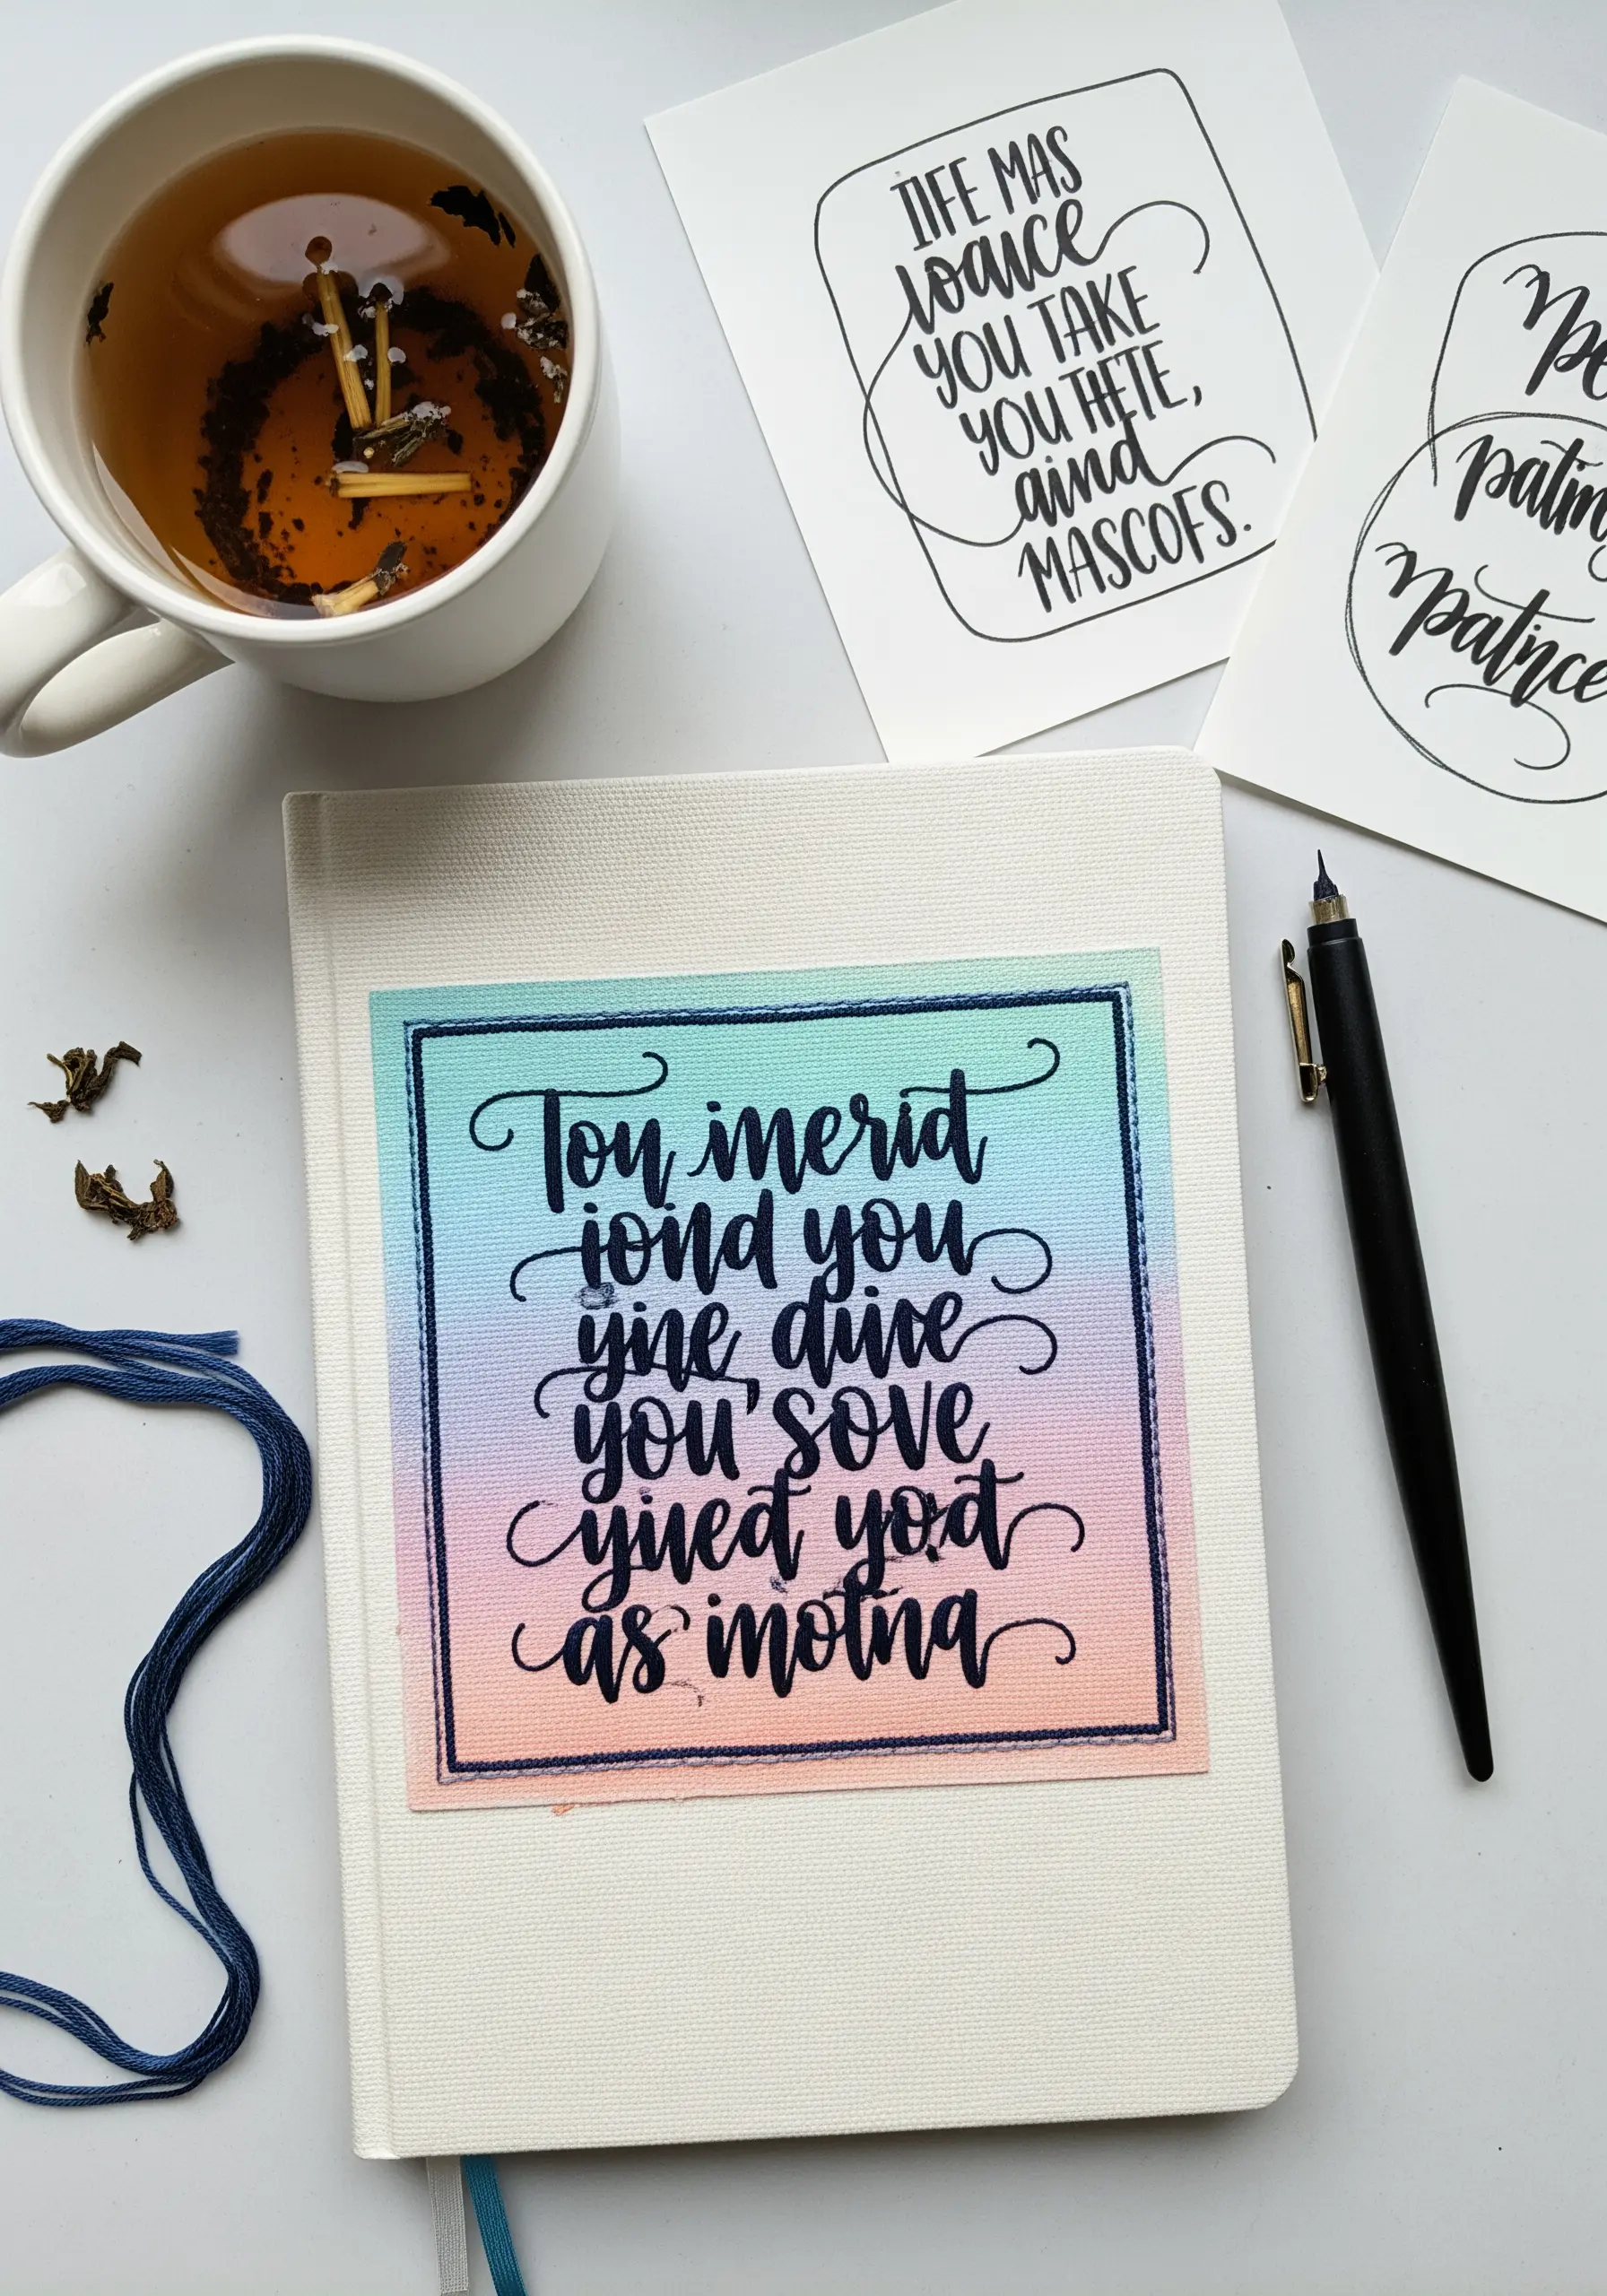 IIFE MAS
wauce
YOU TAKE
YOU HETE,
aind
MASCOFS.
patin
patince
Tou inerid
iond you
yine duve
you'sove
yiued yod
as inotna